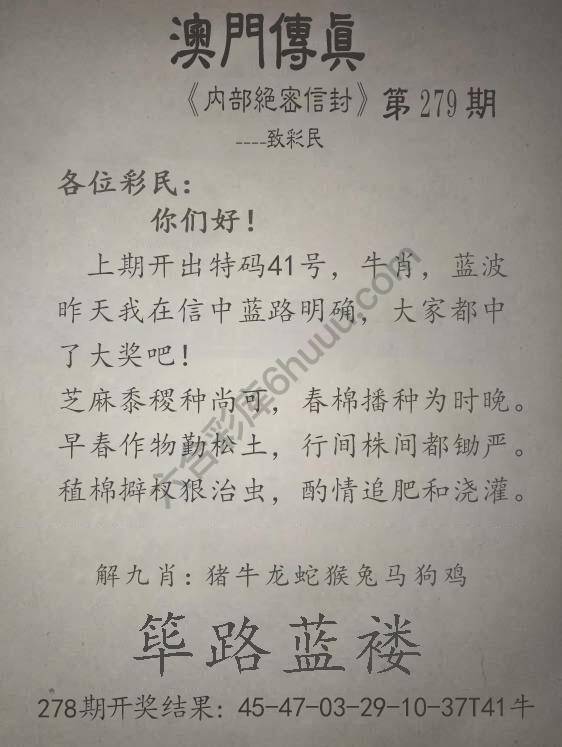 澳門傳眞
《内部絕密信封》第279期
----致彩民
各位彩民：
你们好！
上期开出特码41号，牛肖，蓝波
昨天我在信中蓝路明确，大家都中
了大奖吧！
芝麻黍稷种尚可，春棉播种为时晚。
早春作物勤松土，行间株间都锄严。
稙棉擗杈狠治虫，酌情追肥和浇灌。
解九肖：猪牛龙蛇猴兔马狗鸡
筚路蓝褛
278期开奖结果：45-47-03-29-10-37T41牛
六合彩库6huuu.com